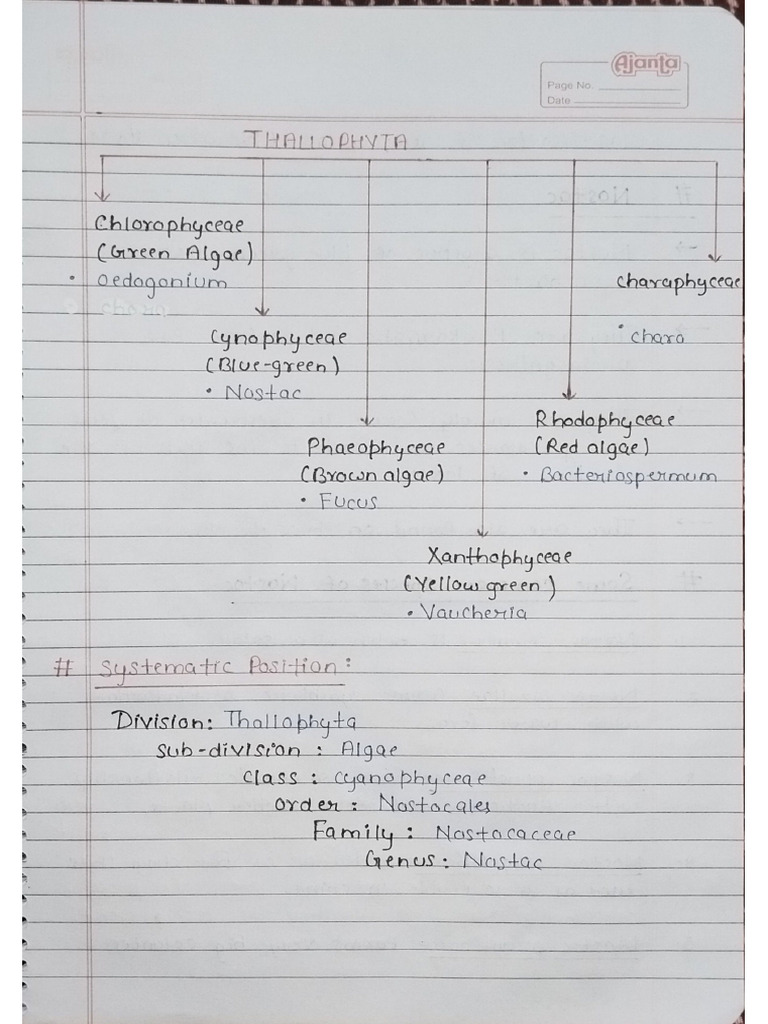 Ajanta
Page No.
Date
THALLOPHYTA
Chlorophyceae
(Green Algae)
• Oedogonium
Charaphyceae
• Chara
Cynophyceae
(Blue-green)
• Nostac
Phaeophyceae
(Brown algae)
• Fucus
Rhodophyceae
(Red algae)
• Bacteriospermum
Xanthophyceae
(Yellow green)
• Vaucheria
# Systematic Position:
Division: Thallophyta
Sub-division: Algae
Class: Cyanophyceae
Order: Nostocales
Family: Nostocaceae
Genus: Nostac